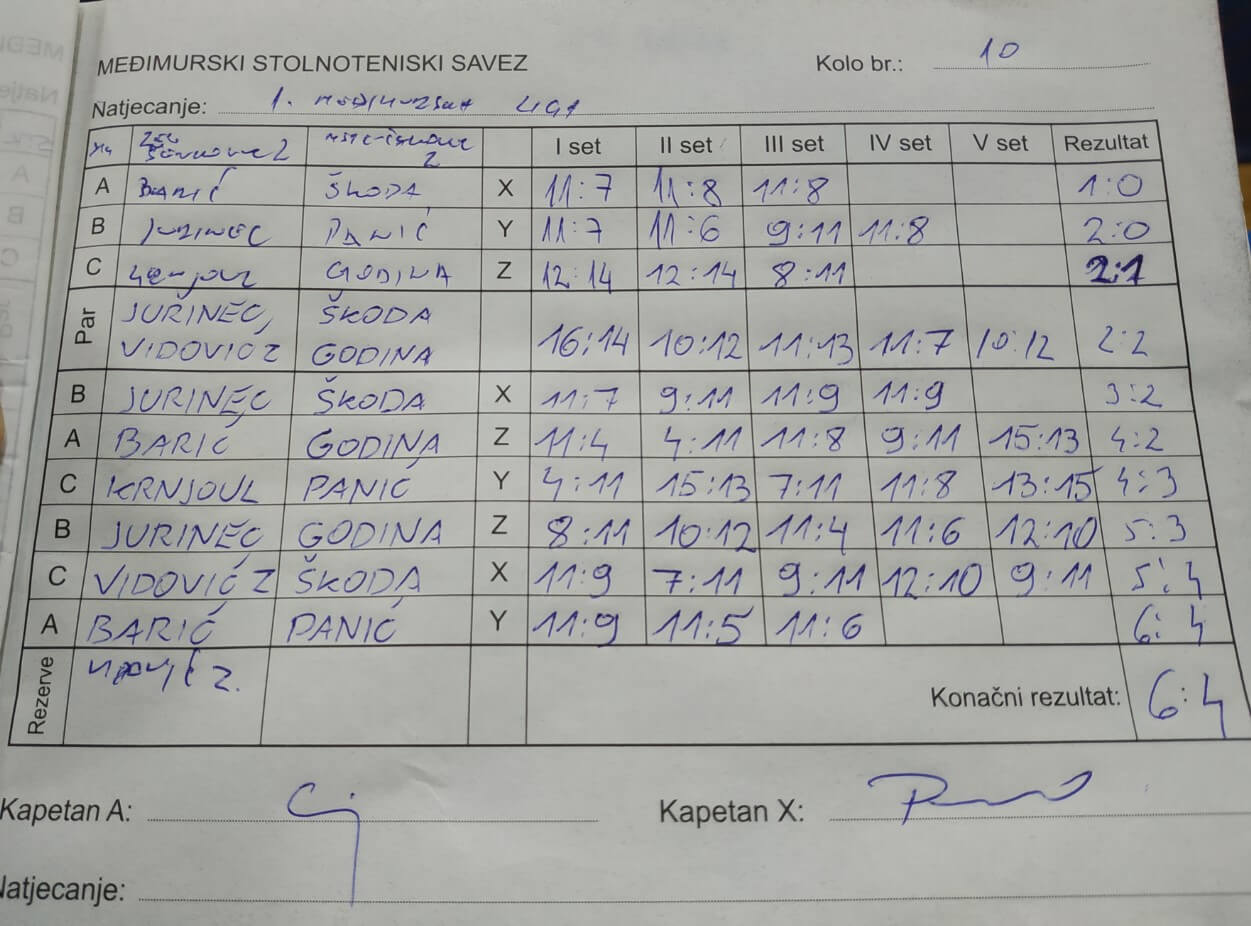 MEĐIMURSKI STOLNOTENISKI SAVEZ Kolo br.: 10
Natjecanje: 1. MEĐIMURSKA LIGA
I set II set III set IV set V set Rezultat
A BARIĆ ŠKODA X 11:7 11:8 11:8 1:0
B JURINEC PANIĆ Y 11:7 11:6 9:11 11:8 2:0
C GODINA Z 12:14 12:14 8:11 2:1
Par JURINEC, ŠKODA
VIDOVIĆ Z GODINA 16:14 10:12 11:13 11:7 10:12 2:2
B JURINEC ŠKODA X 11:7 9:11 11:9 11:9 3:2
A BARIĆ GODINA Z 11:4 4:11 11:8 9:11 15:13 4:2
C KRNJOUL PANIĆ Y 4:11 15:13 7:11 11:8 13:15 4:3
B JURINEC GODINA Z 8:11 10:12 11:4 11:6 12:10 5:3
C VIDOVIĆ Z ŠKODA X 11:9 7:11 9:11 12:10 9:11 5:4
A BARIĆ PANIĆ Y 11:9 11:5 11:6 6:4
Rezerve Z.
Konačni rezultat: 6:4
Kapetan A: Kapetan X:
Natjecanje: